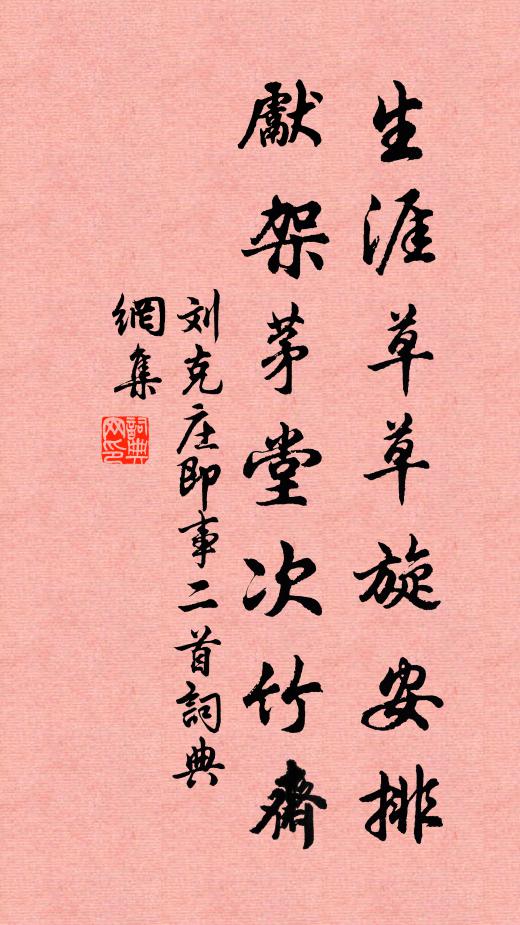 生涯草草旋安排
獻架茅堂次竹齋
刘克庄即事二首詞典
網集
詞典
网印